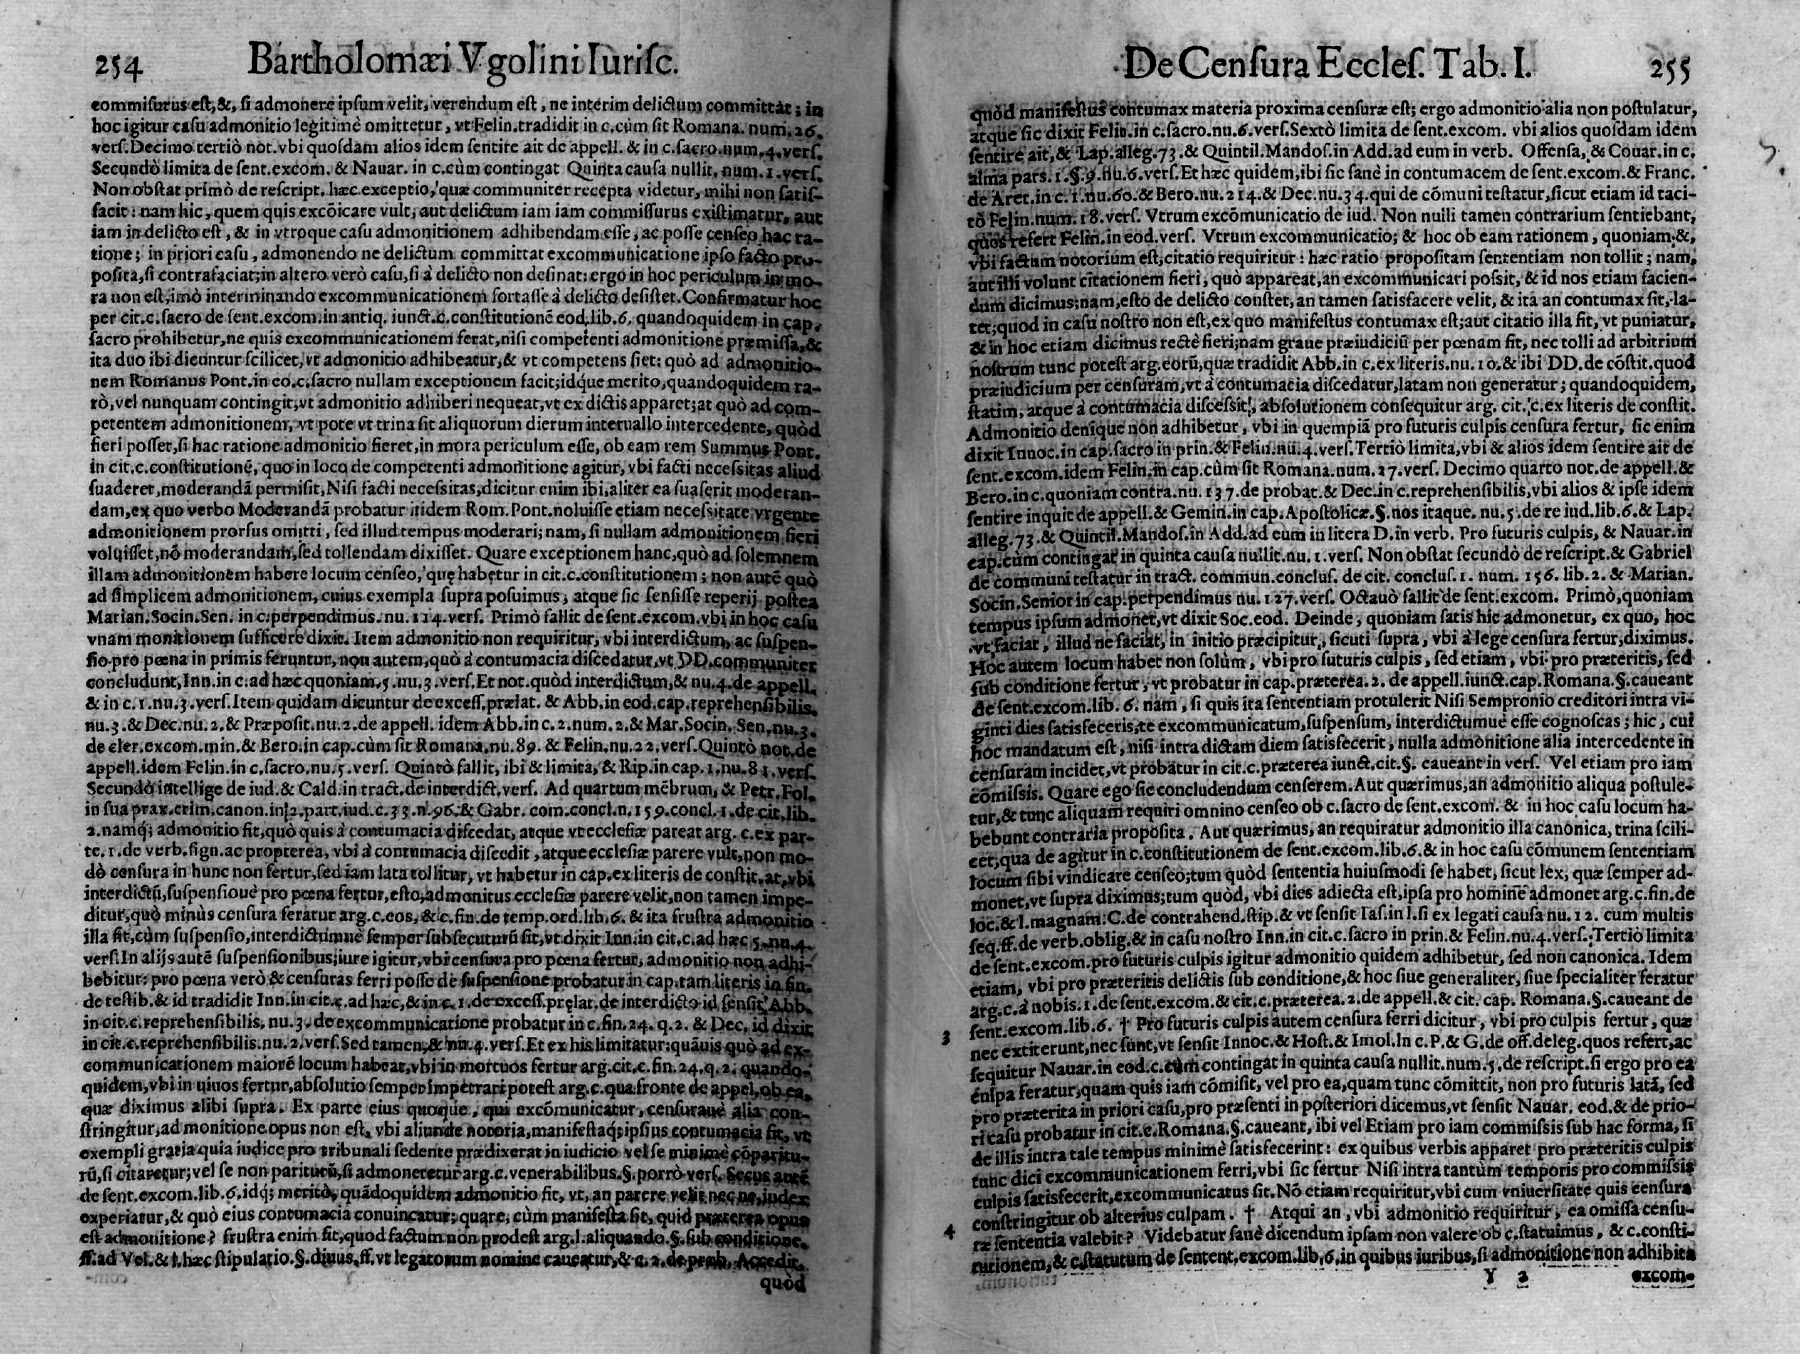 254 Bartholomæi Vgolini Iuriſc.
commiſurus eſt,&, ſi admonere ipſum velit, verendum eſt, ne interim delictum committat; in
hoc igitur caſu admonitio legitimè omittetur, vt Felin.tradidit in c.cùm ſit Romana. num.26.
verſ.Decimo tertiò not.vbi quoſdam alios idem ſentire ait de appell. & in c.ſacro.num.4.verſ.
Secundò limita de ſent.excom. & Nauar. in c.cùm contingat Quinta cauſa nullit. num.1.verſ.
Non obſtat primò de reſcript. hæc exceptio, quæ communiter recepta videtur, mihi non ſatiſ-
facit: nam hic, quem quis excõicare vult, aut delictum iam iam commiſſurus exiſtimatur, aut
iam in delicto eſt, & in vtroque caſu admonitionem adhibendam eſſe, ac poſſe cenſeo hac ra-
tione; in priori caſu, admonendo ne delictum committat excommunicatione ipſo facto pro-
poſita, ſi contrafaciat;in altero verò caſu,ſi à delicto non deſinat: ergo in hoc periculum in mo-
ra non eſt,imò interminando excommunicationem fortaſſe à delicto deſiſtet.Confirmatur hoc
per cit.c.ſacro de ſent.excom.in antiq. iunct.c.conſtitutionẽ eod.lib.6. quandoquidem in cap.
ſacro prohibetur,ne quis excommunicationem ferat,niſi competenti admonitione præmiſſa,&
ita duo ibi dicuntur ſcilicet, vt admonitio adhibeatur,& vt competens ſiet: quò ad admonitio-
nem Romanus Pont.in eo.c.ſacro nullam exceptionem facit;idque merito,quandoquidem ra-
rò,vel nunquam contingit,vt admonitio adhiberi nequeat,vt ex dictis apparet;at quò ad com-
petentem admonitionem, vt pote vt trina ſit aliquorum dierum interuallo intercedente, quòd
fieri poſſet,ſi hac ratione admonitio fieret,in mora periculum eſſe, ob eam rem Summus Pont.
in cit.c.conſtitutionẽ, quo in loco de competenti admonitione agitur, vbi facti neceſſitas aliud
ſuaderet,moderandã permiſit,Niſi facti neceſſitas,dicitur enim ibi,aliter ea ſuaſerit moderan-
dam,ex quo verbo Moderandã probatur itidem Rom.Pont.noluiſſe etiam neceſſitate vrgente
admonitionem prorſus omitti, ſed illud tempus moderari; nam, ſi nullam admonitionem fieri
voluiſſet,nõ moderandam,ſed tollendam dixiſſet. Quare exceptionem hanc,quò ad ſolemnem
illam admonitionem habere locum cenſeo, quę habetur in cit.c.conſtitutionem; non autẽ quò
ad ſimplicem admonitionem, cuius exempla ſupra poſuimus, atque ſic ſenſiſſe reperij poſtea
Marian.Socin.Sen. in c.perpendimus.nu.114.verſ. Primò fallit de ſent.excom.vbi in hoc caſu
vnam monitionem ſufficere dixit. Item admonitio non requiritur, vbi interdictum, ac ſuſpen-
ſio pro pœna in primis feruntur, non autem,quò à contumacia diſcedatur,vt DD.communiter
concludunt,Inn.in c.ad hæc quoniam.5.nu.3.verſ.Et not.quòd interdictum,& nu.4.de appell.
& in c.1.nu.3.verſ.Item quidam dicuntur de exceſſ.prælat. & Abb.in eod.cap.reprehenſibilis.
nu.3.& Dec.nu.2.& Præpoſit.nu.2.de appell. idem Abb.in c.2.num.2.& Mar.Socin. Sen.nu.3.
de cler.excom.min.& Bero.in cap.cùm ſit Romana,nu.89. & Felin.nu.22.verſ.Quintò not.de
appell.idem Felin.in c.ſacro.nu.5.verſ. Quintò fallit, ibi & limita, & Rip.in cap.1.nu.81.verſ.
Secundò intellige de iud.& Cald.in tract.de interdict.verſ. Ad quartum mẽbrum, & Petr.Fol.
in ſua prax.crim.canon.in 2.part.iud.c.33.n.96.& Gabr. com.concl.n.159.concl.1.de cit.lib.
2.namq; admonitio fit,quò quis à contumacia diſcedat, atque vt eccleſiæ pareat arg. c.ex par-
te.1.de verb.ſign.ac propterea, vbi à contumacia diſcedit, atque eccleſiæ parere vult,non mo-
dò cenſura in hunc non fertur,ſed iam lata tollitur, vt habetur in cap.ex literis de conſtit.at,vbi
interdictũ,ſuſpenſioue pro pœna fertur,eſto,admonitus eccleſiæ parere velit,non tamen impe-
ditur,quò minùs cenſura feratur arg.c.eos, & c.fin.de temp.ord.lib.6. & ita fruſtra admonitio
illa fit,cùm ſuſpenſio,interdictumuè ſemper ſubſecuturũ ſit,vt dixit Inn.in cit.c.ad hæc 5.nu.4.
verſ.In alijs autẽ ſuſpenſionibus;iure igitur,vbi cenſura pro pœna fertur, admonitio non adhi-
bebitur: pro pœna verò & cenſuras ferri poſſe de ſuſpenſione probatur in cap.tam literis in fin.
de teſtib.& id tradidit Inn.in cit.c.ad hæc, & in c.1.de exceſſ.pręlat.de interdicto id ſenſit Abb.
in cit.c.reprehenſibilis. nu.3. de excommunicatione probatur in c.fin.24. q.2. & Dec. id dixit
in cit.c.reprehenſibilis.nu.2.verſ.Sed tamen,& nu.4.verſ.Et ex his limitatur:quãuis quò ad ex-
communicationem maiorẽ locum habeat,vbi in mortuos fertur arg.cit.c.fin.24.q.2. quando-
quidem,vbi in viuos fertur,abſolutio ſemper impetrari poteſt arg.c.qua fronte de appel,ob ea,
quæ diximus alibi ſupra. Ex parte eius quoque, qui excõmunicatur, cenſuraue alia con-
ſtringitur,ad monitione opus non eſt, vbi aliunde notoria,manifeſtaq; ipſius contumacia ſit, vt
exempli gratia quia iudice pro tribunali ſedente prædixerat in iudicio vel ſe minimè cõparitu-
rũ,ſi citaretur;vel ſe non pariturũ,ſi admoneretur arg.c.venerabilibus.§.porrò verſ. Secus autẽ
de ſent.excom.lib.6.idq; meritò, quãdoquidem admonitio fit, vt, an parere velit nec ne,iudex
experiatur,& quò eius contumacia conuincatur; quare, cùm manifeſta ſit, quid præterea opus
eſt admonitione? fruſtra enim fit,quod factum non prodeſt arg.l.aliquando.§.ſub conditione.
ff.ad Vel.& l.hæc ſtipulatio.§.diuus.ff.vt legatorum nomine caueatur,& c.2.de prob. Accedit,
quòd
De Cenſura Eccleſ. Tab. I. 255
quòd manifeſtus contumax materia proxima cenſuræ eſt; ergo admonitio alia non poſtulatur,
atque ſic dixit Felin.in c.ſacro.nu.6.verſ.Sextò limita de ſent.excom. vbi alios quoſdam idem
ſentire ait,& Lap.alleg.73.& Quintil.Mandoſ.in Add.ad eum in verb. Offenſa, & Couar.in c.
alma pars.1.§.9.nu.6.verſ.Et hæc quidem,ibi ſic ſanè in contumacem de ſent.excom.& Franc.
de Aret.in c.1.nu.60.& Bero.nu.214.& Dec.nu.34.qui de cõmuni teſtatur,ſicut etiam id taci-
tò Felin.num.18.verſ. Vtrum excõmunicatio de iud. Non nulli tamen contrarium ſentiebant,
quos refert Felin.in eod.verſ. Vtrum excommunicatio; & hoc ob eam rationem, quoniam,&,
vbi factum notorium eſt,citatio requiritur: hæc ratio propoſitam ſententiam non tollit; nam,
aut illi volunt citationem fieri, quò appareat,an excommunicari poſſit,& id nos etiam facien-
dum dicimus:nam,eſto de delicto conſtet,an tamen ſatisfacere velit,& ita an contumax ſit,la-
tet;quod in caſu noſtro non eſt,ex quo manifeſtus contumax eſt;aut citatio illa fit, vt puniatur,
& in hoc etiam dicimus rectè fieri;nam graue præiudiciũ per pœnam fit, nec tolli ad arbitrium
noſtrum tunc poteſt arg.eorũ,quæ tradidit Abb.in c.ex literis.nu.10.& ibi DD.de cõſtit.quod
præiudicium per cenſuram,vt à contumacia diſcedatur,latam non generatur; quandoquidem,
ſtatim, atque à contumacia diſceſſit, abſolutionem conſequitur arg. cit. c.ex literis de conſtit.
Admonitio denique non adhibetur, vbi in quempiã pro futuris culpis cenſura fertur, ſic enim
dixit Innoc.in cap.ſacro in prin.& Felin.nu.4.verſ.Tertiò limita,vbi & alios idem ſentire ait de
ſent.excom.idem Felin.in cap.cùm ſit Romana.num.27.verſ. Decimo quarto not.de appell.&
Bero.in c.quoniam contra.nu.137.de probat.& Dec.in c.reprehenſibilis,vbi alios & ipſe idem
ſentire inquit de appell.& Gemin.in cap.Apoſtolicæ.§.nos itaque. nu.5.de re iud.lib.6.& Lap.
alleg.73.& Quintil.Mandoſ.in Add.ad eum in litera D.in verb. Pro futuris culpis, & Nauar.in
cap.cùm contingat in quinta cauſa nullit.nu.1.verſ. Non obſtat ſecundò de reſcript.& Gabriel
de communi teſtatur in tract. commun.concluſ. de cit. concluſ.1. num. 156. lib.2. & Marian.
Socin.Senior in cap.perpendimus nu.127.verſ. Octauò fallit de ſent.excom. Primò,quoniam
tempus ipſum admonet,vt dixit Soc.eod. Deinde, quoniam ſatis hic admonetur, ex quo, hoc
vt faciat, illud ne faciat, in initio præcipitur, ſicuti ſupra, vbi à lege cenſura fertur,diximus.
Hoc autem locum habet non ſolùm, vbi pro futuris culpis, ſed etiam, vbi pro præteritis, ſed
ſub conditione fertur, vt probatur in cap.præterea.2. de appell.iunct.cap.Romana.§.caueant
de ſent.excom.lib.6. nam, ſi quis ita ſententiam protulerit Niſi Sempronio creditori intra vi-
ginti dies ſatisfeceris,te excommunicatum,ſuſpenſum, interdictumuè eſſe cognoſcas; hic, cui
hoc mandatum eſt, niſi intra dictam diem ſatisfecerit, nulla admonitione alia intercedente in
cenſuram incidet,vt probatur in cit.c.præterea iunct.cit.§. caueant in verſ. Vel etiam pro iam
cõmiſſis. Quare ego ſic concludendum cenſerem. Aut quærimus,an admonitio aliqua poſtule-
tur,& tunc aliquam requiri omnino cenſeo ob c.ſacro de ſent.excom. & in hoc caſu locum ha-
bebunt contraria propoſita. Aut quærimus, an requiratur admonitio illa canonica, trina ſcili-
cet,qua de agitur in c.conſtitutionem de ſent.excom.lib.6.& in hoc caſu cõmunem ſententiam
locum ſibi vindicare cenſeo;tum quòd ſententia huiuſmodi ſe habet, ſicut lex, quæ ſemper ad-
monet,vt ſupra diximus;tum quòd, vbi dies adiecta eſt,ipſa pro hominẽ admonet arg.c.fin.de
loc.& l.magnam.C.de contrahend.ſtip.& vt ſenſit Iaſ.in l.ſi ex legati cauſa nu.12. cum multis
ſeq.ff.de verb.oblig.& in caſu noſtro Inn.in cit.c.ſacro in prin.& Felin.nu.4.verſ.Tertiò limita
de ſent.excom.pro futuris culpis igitur admonitio quidem adhibetur, ſed non canonica. Idem
etiam, vbi pro præteritis delictis ſub conditione,& hoc ſiue generaliter, ſiue ſpecialiter feratur
arg.c.à nobis.1.de ſent.excom.& cit.c.præterea.2.de appell.& cit. cap. Romana.§.caueant de
ſent.excom.lib.6. † Pro futuris culpis autem cenſura ferri dicitur, vbi pro culpis fertur, quæ
3 nec extiterunt,nec ſunt,vt ſenſit Innoc.& Hoſt.& Imol.In c.P.& G.de off.deleg.quos refert,ac
ſequitur Nauar.in eod.c.cùm contingat in quinta cauſa nullit.num.5.de reſcript.ſi ergo pro ea
culpa feratur,quam quis iam cõmiſit, vel pro ea,quam tunc cõmittit, non pro futuris latã, ſed
pro præterita in priori caſu,pro præſenti in poſteriori dicemus,vt ſenſit Nauar. eod.& de prio-
ri caſu probatur in cit.c.Romana.§.caueant, ibi vel Etiam pro iam commiſſis ſub hac forma, ſi
de illis intra tale tempus minimè ſatisfecerint: ex quibus verbis apparet pro præteritis culpis
tunc dici excommunicationem ferri,vbi ſic fertur Niſi intra tantùm temporis pro commiſſis
culpis ſatisfecerit,excommunicatus ſit.Nõ etiam requiritur,vbi cum vniuerſitate quis cenſura
conſtringitur ob alterius culpam. † Atqui an, vbi admonitio requiritur, ea omiſſa cenſu-
4 ræ ſententia valebit? Videbatur ſanè dicendum ipſam non valere ob c.ſtatuimus, & c.conſti-
tutionem,& c.ſtatutum de ſentent.excom.lib.6.in quibus iuribus,ſi admonitione non adhibita
Y 2 excom-